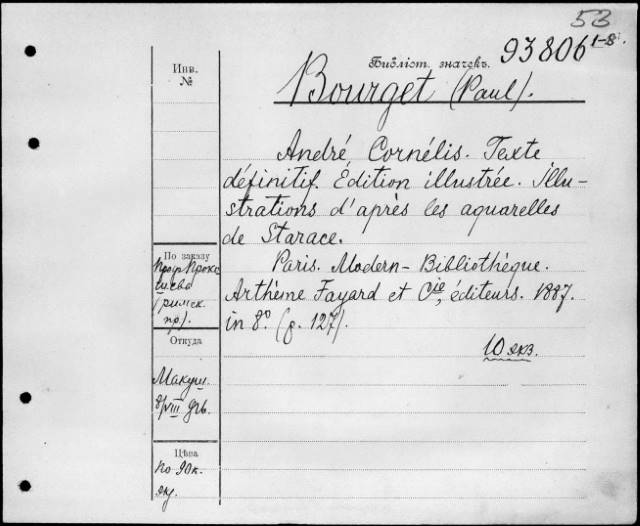 53
Библіот. значекъ. 93806 1-8.
Инв.
№
Bourget (Paul).
André Cornélis. Texte
définitif. Édition illustrée. Illu-
strations d'après les aquarelles
de Starace.
Paris. Modern-Bibliothèque.
Arthème Fayard et Cie, éditeurs. 1887.
in 8º. (p. 127).
10 экз.
По заказу
(римск.
пр.).
Откуда
Макуш.
8/VIII
Цѣна
по 90 к.
экз.